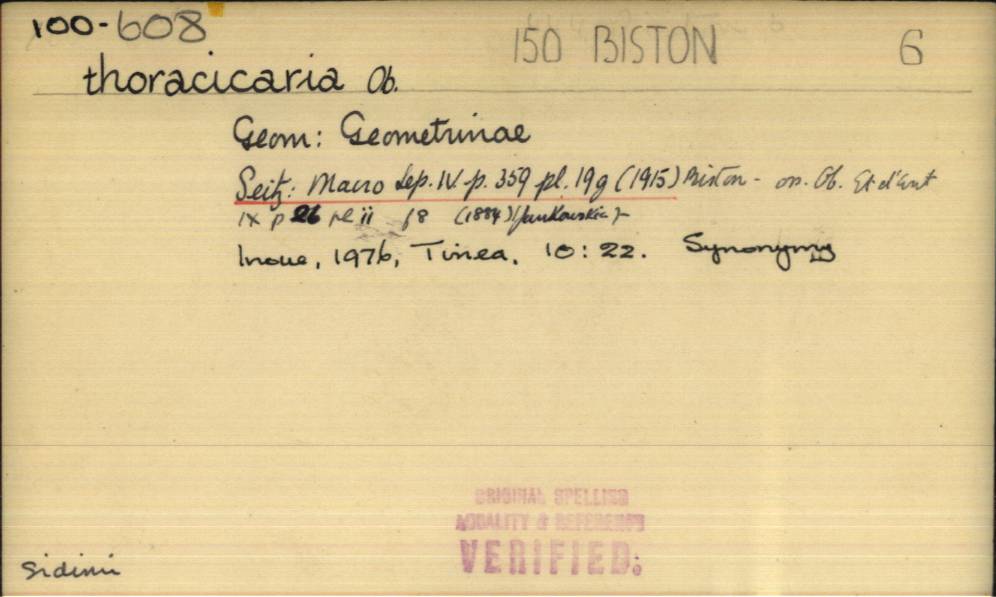 100-608
150 BISTON 6
thoracicaria Ob.
Geom: Geometrinae
Seitz: Macro Lep. IV. p. 359 pl. 19g (1915) Biston - Ob. Et d'Ent
IX p 26 pl ii f 8 (1884) (Jankowskia)-
Inoue, 1976, Tinea, 10: 22. Synonymy
ORIGINAL SPELLING
MODALITY & REFERENCE
VERIFIED:
Sidimi